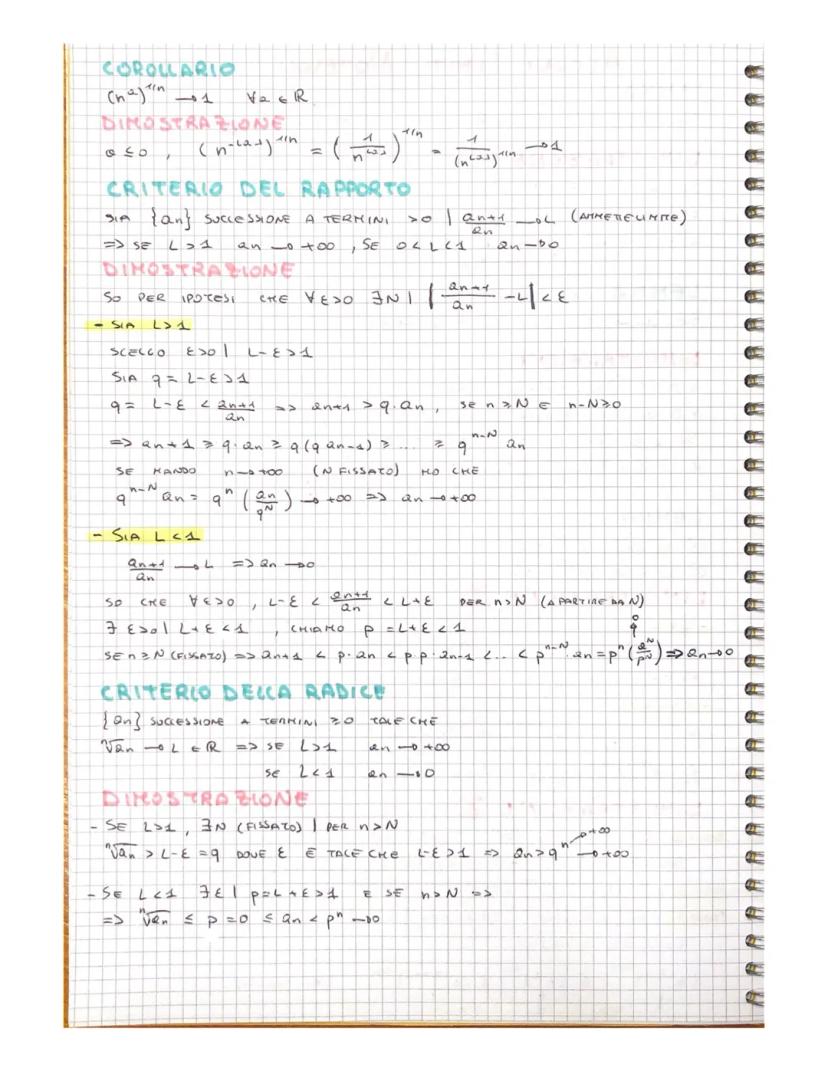 COROLLARIO
(n^a)^1/n → 1 ∀a ∈ R
DIMOSTRAZIONE
a ≤ 0 , (n^-|a|)^1/n = (1/n^|a|)^1/n = 1/(n^|a|)^1/n → 1
CRITERIO DEL RAPPORTO
SIA {an} SUCCESSIONE A TERMINI >0 | an+1/an → L (AMMETTE LIMITE)
=> SE L>1 an → +∞ , SE 0<L<1 an → 0
DIMOSTRAZIONE
SO PER IPOTESI CHE ∀ε>0 ∃N | |an+1/an - L| < ε
- SIA L>1
SCELGO ε>0 | L-ε>1
SIA q = L-ε>1
q = L-ε < an+1/an => an+1 > q·an , se n ≥ N E n-N≥0
=> an+1 ≥ q·an ≥ q(q an-1) ≥ ... ≥ q^n-N an
SE MANDO n → +∞ (N FISSATO) HO CHE
q^n-N an = q^n (an/q^N) → +∞ => an → +∞
- SIA L<1
an+1/an → L => an → 0
SO CHE ∀ε>0 , L-ε < an+1/an < L+ε PER n>N (A PARTIRE DA N)
∃ ε>0 | L+ε<1 , CHIAMO p = L+ε<1
SE n≥N (FISSATO) => an+1 < p·an < p·p·an-1 <... < p^n-N·an = p^n (a^N/p^N) => an→0
CRITERIO DELLA RADICE
{an} SUCCESSIONE A TERMINI ≥0 TALE CHE
ⁿ√an → L ∈ R => SE L>1 an → +∞
SE L<1 an → 0
DIMOSTRAZIONE
- SE L>1, ∃N (FISSATO) | PER n>N
ⁿ√an > L-ε = q DOVE ε È TALE CHE L-ε>1 => an>q^n → +∞ → +∞
- SE L<1 ∃ε | p=L+ε>1 E SE n>N =>
=> ⁿ√an ≤ p = 0 ≤ an < p^n → 0